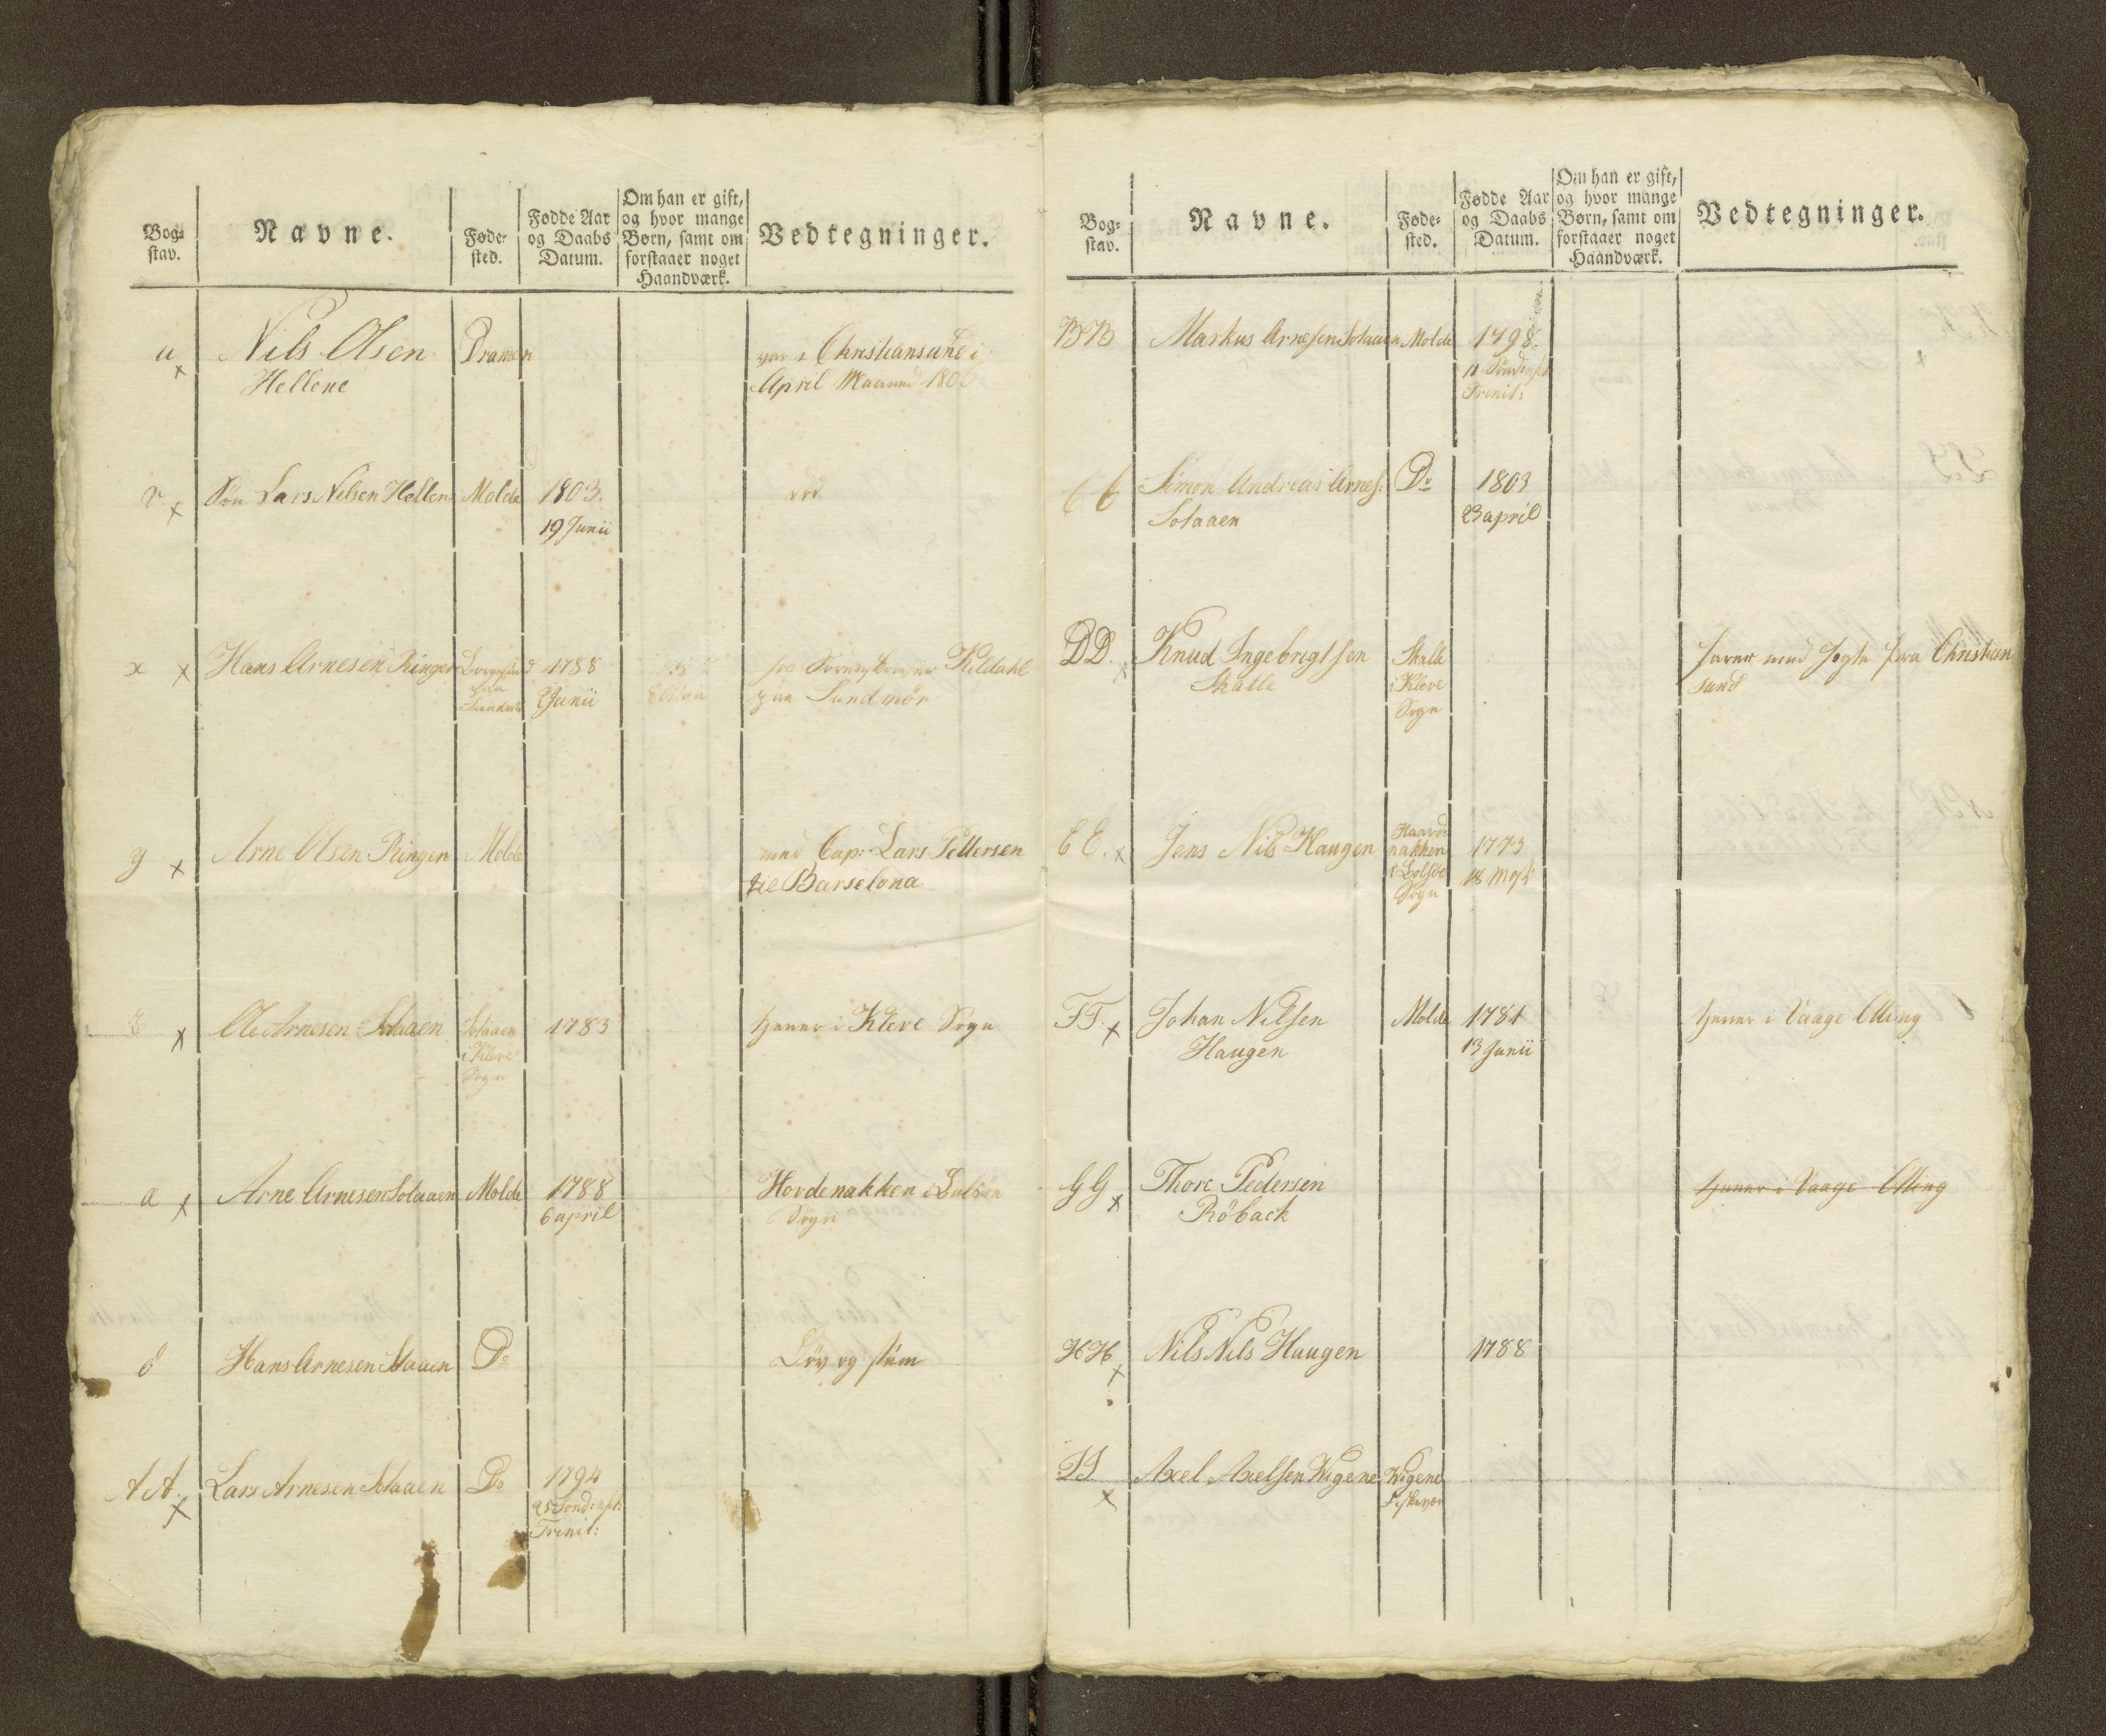 Bog-
stav.
Navne.
Føde-
sted.
Fødde Aar
og Daabs
Datum.
Om han er gift,
og hvor mange
Børn, samt om
forstaaer noget
Haandværk.
Vedtegninger.
u x
Nils Olsen
Hellene
Dramen
var i Christiansund i
April Maaned 180
v. x
Søn Lars Nilsen Hellen
Molde
1803.
19 Junii
x x
Hans Arnesen Ringen
1788
2 Junii
hos Kildahl
paa Sundmör
y x
Arne Olsen Ringen
Molde
med Cap: Lars Pettersen
til Barselona
x
Ole Arnesen Solaaen
Solaaen
i Kleve
Sogn
1783
tjener i Kleve Sogn
a x
Arne Arnesen Solaaen
Molde
1788
6 april
Hordenakken i Bolsøe
Sogn
Hans Arnesen Solaaen
Do
Döv og stum
AA. x
Lars Arnesen Solaaen
Do
1794
25 Sønd: eft:
Trinit:
Bog-
stav.
Navne.
Føde-
sted.
Fødde Aar
og Daabs
Datum.
Om han er gift,
og hvor mange
Børn, samt om
forstaaer noget
Haandværk.
Vedtegninger.
BB
Markus Arnesen Solaaen
Molde
1798.
Trinit:
CC
Simon Andreas Arnes:
Solaaen
Do
1803
23 april
DD. x
Knud Ingebrigtsen
Skalle
Skalle
i Kleve
Sogn
farer med Jagta fra Christian
sund
EE. x
Jens Nils Haugen
Haavde
nakken
i Bolsøe
Sogn
1773
FF. x
Johan Nilsen
Haugen
Molde
1781
13 Junii
tjener i Vaage Elling
GG x
Thore Pedersen
Röback
tjener i Vaage Elling
HH x
Nils Nils Haugen
1788
II x
Axel Axelsen Wigene
Wigene
Fiskevær